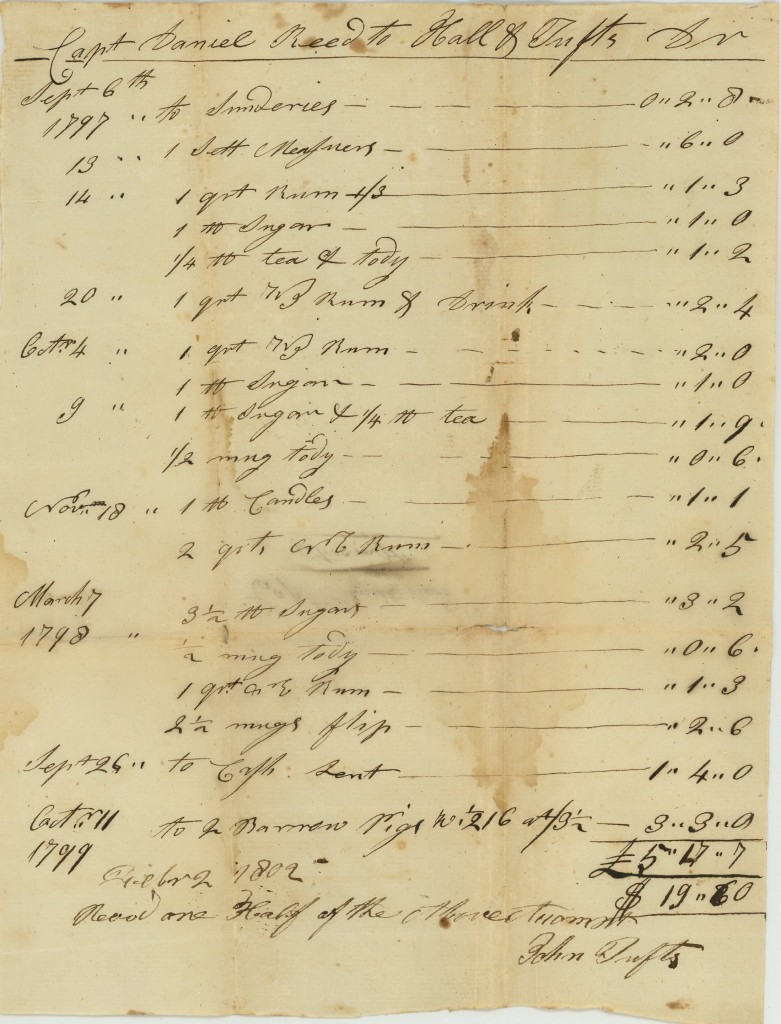 Capt Daniel Reed to Hall & Tufts Dr
Sept 6th
1797 " to Sunderies — 0 " 2 " 8
13 " 1 Sett Measuers — " 6 " 0
14 " 1 qrt Rum 1/3 — " 1 " 3
1 lb Sugar — " 1 " 0
1/4 lb tea & tody — " 1 " 2
20 " 1 qrt WI Rum & Drink — " 2 " 4
Octr 4 " 1 qrt WI Rum — " 2 " 0
1 lb Sugar — " 1 " 0
9 " 1 lb Sugar & 1/4 lb tea — " 1 " 9
1/2 mug tody — " 0 " 6
Novm 18 " 1 lb Candles — " 1 " 1
2 qrts NE Rum — " 2 " 5
March 7
1798 " 3 1/2 lb Sugar — " 3 " 2
1/2 mug tody — " 0 " 6
1 qrt NE Rum — " 1 " 3
2 1/2 mugs flip — " 2 " 6
Sept 26 " to Cash Lent — 1 " 4 " 0
Octr 11 to 2 Barrow Pigs wt 216 at /3 1/2 — 3 " 3 " 0
1799 £5 " 17 " 7
1802 $ 19 " 60
Recd one Half of the Above
John Tufts